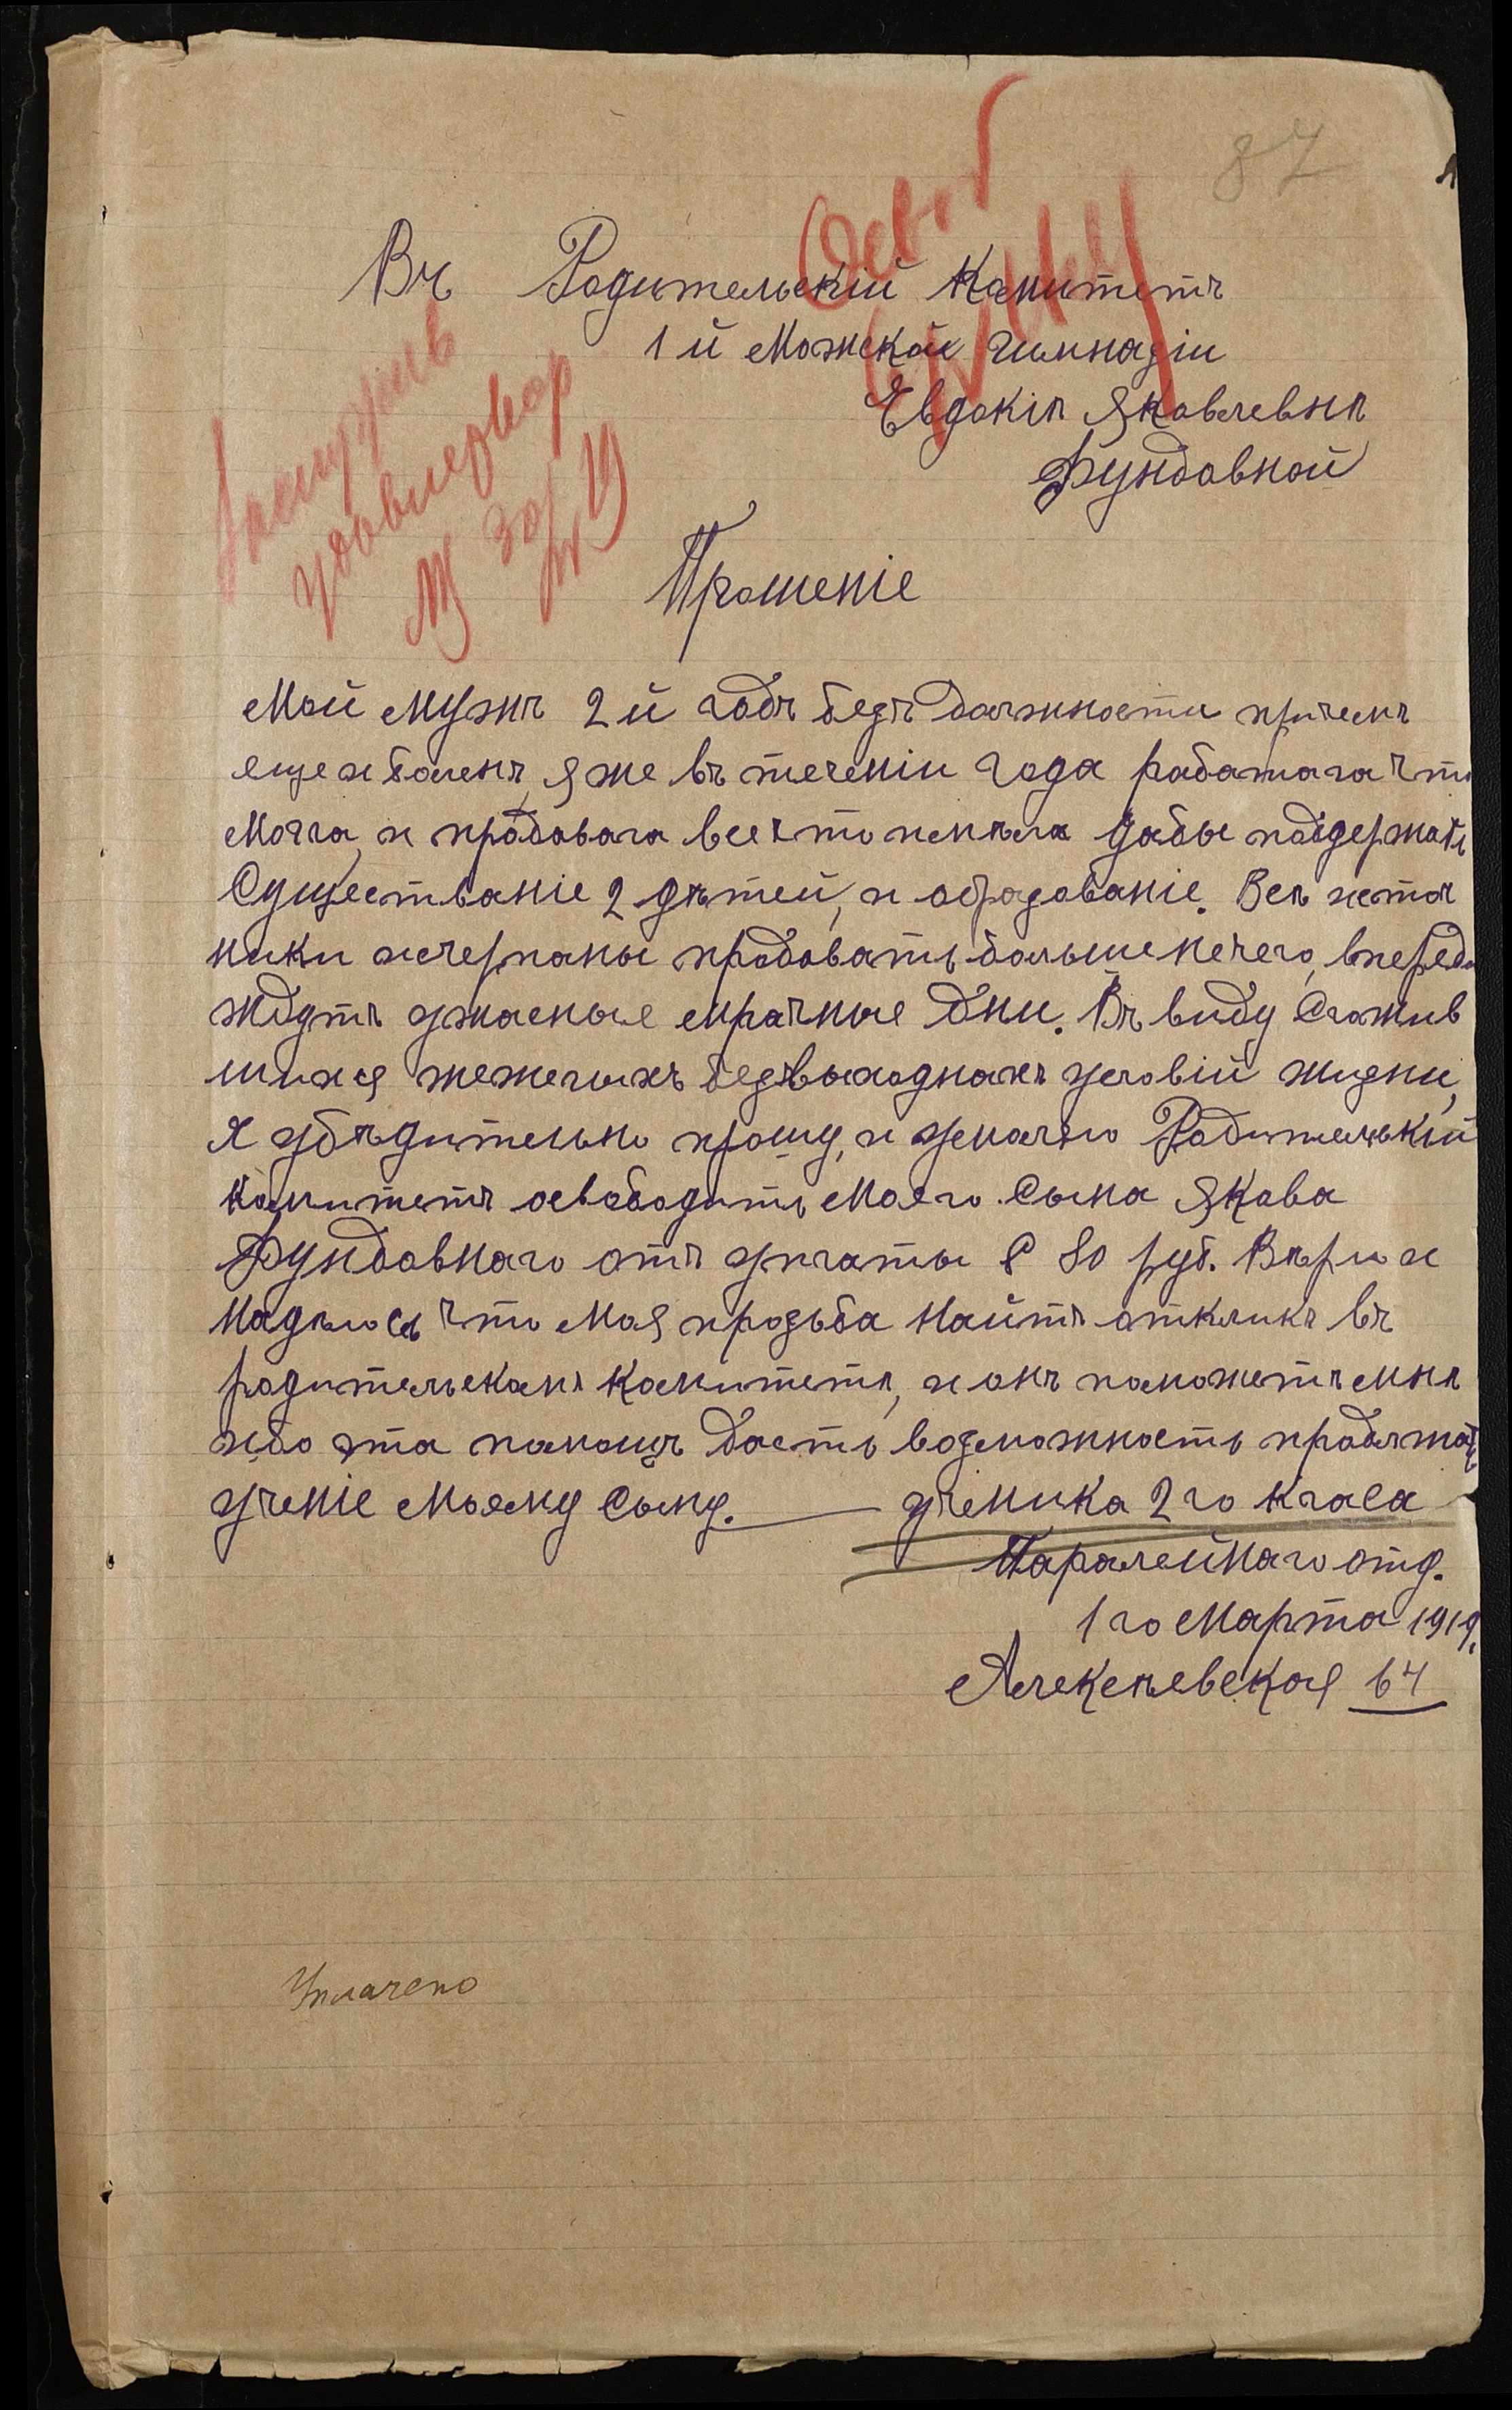 87
Въ Родительскій Камитетъ
1 й Можской гимнадіи
Евдокіѣ Яковлевнѣ
Фундовной
удовлетвор
30
19
Прошеніе
Мой мужъ 2 й годъ безъ должности причемъ
еще и боленъ, я же въ теченіи года работала что
могла, и продовала все что имѣла дабы поддержать
Существаніе 2 дѣтей, и образованіе. Всѣ источ
ники исчерпаны продовать больше нечего, впереди
ждутъ ужасные мрачные дни. Въ виду Сложив
шихся тежелыхъ безвыходныхъ условій жизни,
я убѣдительно прошу, и умоляю Родительскій
Камитетъ освободить Моего Сына Якова
Фундовнаго отъ уплаты 80 руб. Вѣрю и
Надѣюсь что Моя прозьба Найтъ откликъ въ
родительскамъ Камитетѣ, и онъ поможетъ мнѣ
ибо эта помощь дастъ возможность продлжать
ученіе Моему Сыну. — ученика 2 го класа
Паралейнаго отд.
1 го Марта 1919.
Алексѣевская 64
Уплачено